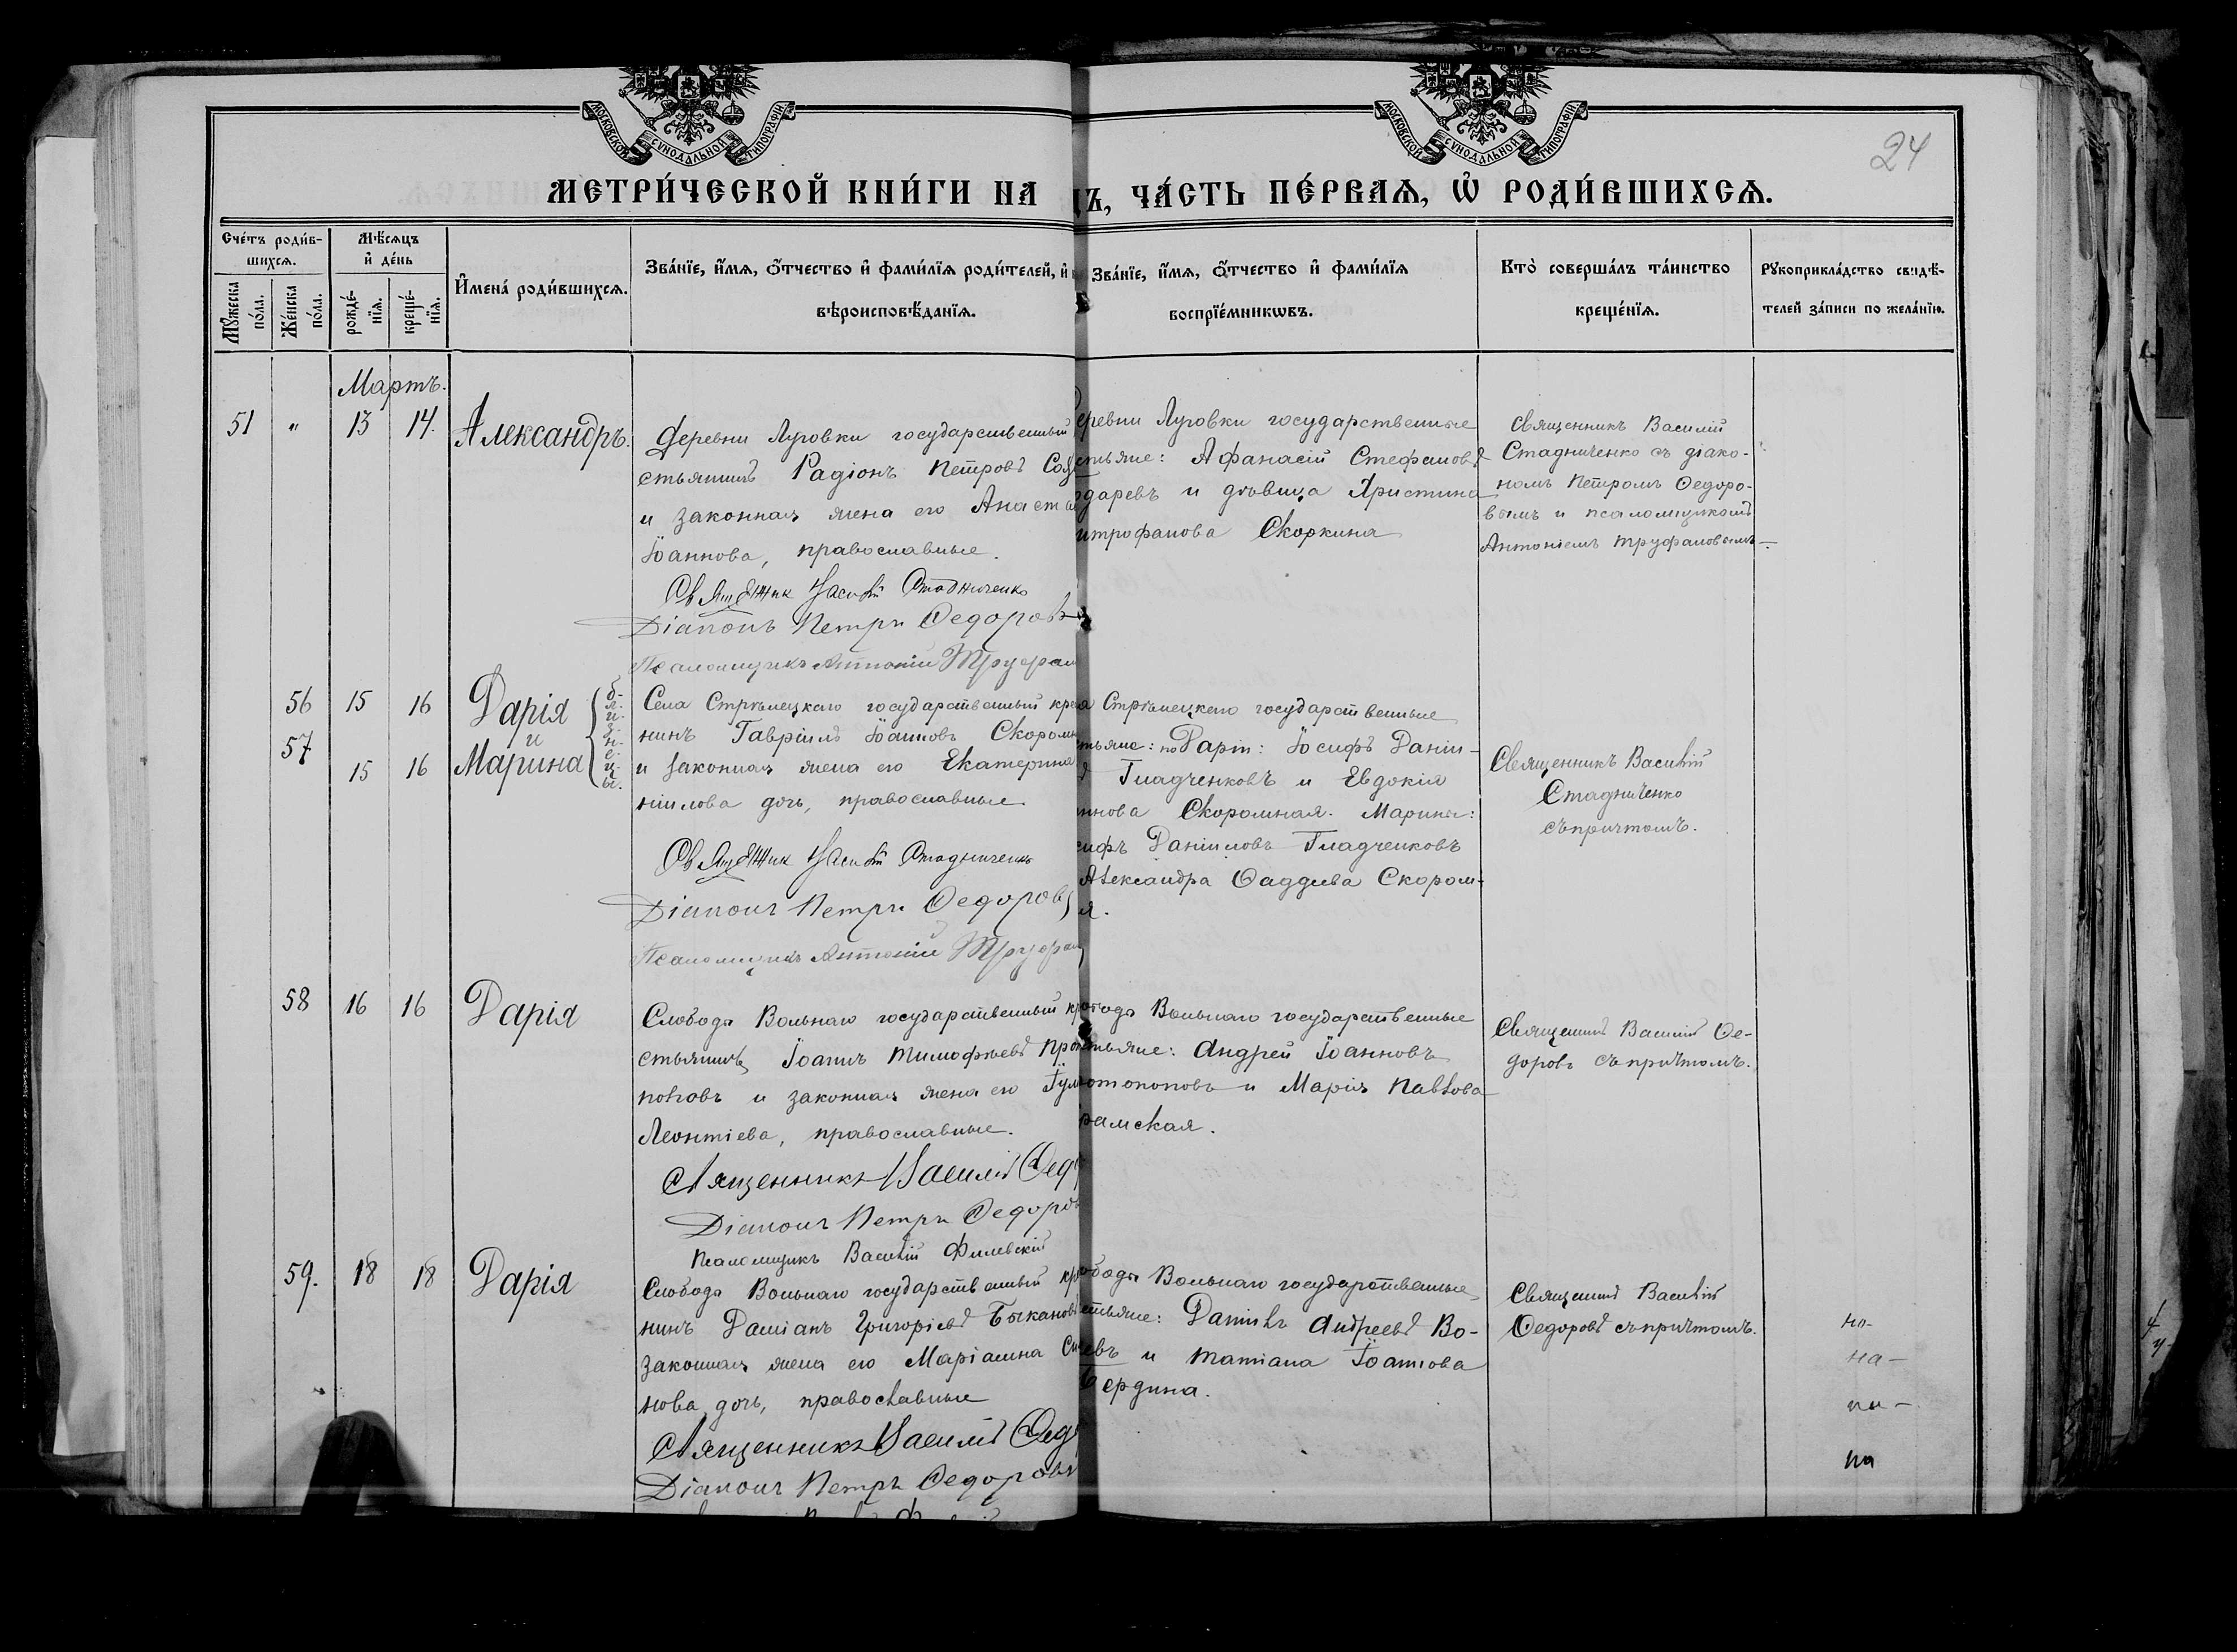 МОСКОВСКОЙ СѴНОДАЛЬНОЙ ТИПОГРАФІИ
МОСКОВСКОЙ СѴНОДАЛЬНОЙ ТИПОГРАФІИ
24
МЕТРИ́ЧЕСКОЙ КНИ́ГИ НА
ДЪ, ЧА́СТЬ ПЕ́РВАѦ, Ѡ҆ РОДИ́ВШИХСѦ.
Сче́тъ роди́в-
шихсѧ.
Мѣ́сѧцъ
и҆ де́нь
Мꙋ́жеска
по́ла.
Же́нска
по́ла.
рожде́-
нїѧ.
креще́-
нїѧ.
И҆мена̀ роди́вшихсѧ.
Зва́нїе, и҆́мѧ, ѻ҆́тчество и҆ фами́лїѧ роди́телей, и҆
вѣроисповѣ́данїѧ.
Зва́нїе, и҆́мѧ, ѻ҆́тчество и҆ фами́лїѧ
воспрїе́мникѡвъ.
Кто̀ соверша́лъ та́инство
креще́нїѧ.
Рꙋкоприкла́дство свидѣ́-
телей за́писи по жела́нїю.
Мартъ.
51 " 13 14. Александръ.
Деревни Луговки государственный
стьянинъ Радіонъ Петровъ Сод
и законная жена его Анаста
Іоаннова, православные.
Священник Василій Стадниченко
Діаконъ Петръ Ѳедоровъ
Псаломщикъ Антоній Труфан
еревни Луговки государственные
стьяне: Афанасій Стефановъ
одаревъ и дѣвица Христина
итрофанова Скоркина
Священникъ Василій
Стадниченко съ діако-
номъ Петромъ Ѳедоро-
вымъ и псаломщикомъ
Антоніемъ Труфановымъ.
56 15 16 Дарія
и
57 15 16 Марина
б-
л-
и-
з-
н-
е-
ц-
ы.
Села Стрѣлецкаго государственный кре
нинъ Гавріилъ Іоанновъ Скоромн
и законная жена его Екатерина
ніилова дочь, православные
Священник Василій Стадниченко
Діаконъ Петръ Ѳедоровъ
Псаломщикъ Антоній Труфан
а Стрѣлецкаго государственные
стьяне: по Даріи: Іосифъ Даніи-
Гладченковъ и Евдокія
ннова Скоромная. Марины:
сифъ Даніиловъ Гладченковъ
Александра Ѳаддеева Скором-
я.
Священникъ Василій
Стадниченко
съ причтомъ.
58 16 16 Дарія
Слобода Вольнаго государственный кр
стьянинъ Іоаннъ Тимофѣевъ Прот
поповъ и законная жена его Іул
Леонтіева, православные.
Священникъ Василій Ѳед
Діаконъ Петръ Ѳедоровъ
Псаломщикъ Василій Филевскій
обода Вольнаго государственные
стьяне: Андрей Іоанновъ
отопоповъ и Марія Павлова
рамская.
Священникъ Василій Ѳе-
доровъ съ причтомъ.
59. 18 18 Дарія
Слобода Вольнаго государственный кр
нинъ Даміанъ Григорьевъ Быкановъ
законная жена его Маріамна
нова дочь, православные
Священникъ Василій Ѳед
Діаконъ Петръ Ѳедоровъ
ободы Вольнаго государственные
стьяне: Даніилъ Андреевъ Во-
евъ и Татіана Іоаннова
ердина.
Священникъ Василій
Ѳедоровъ съ причтомъ.
на-
на